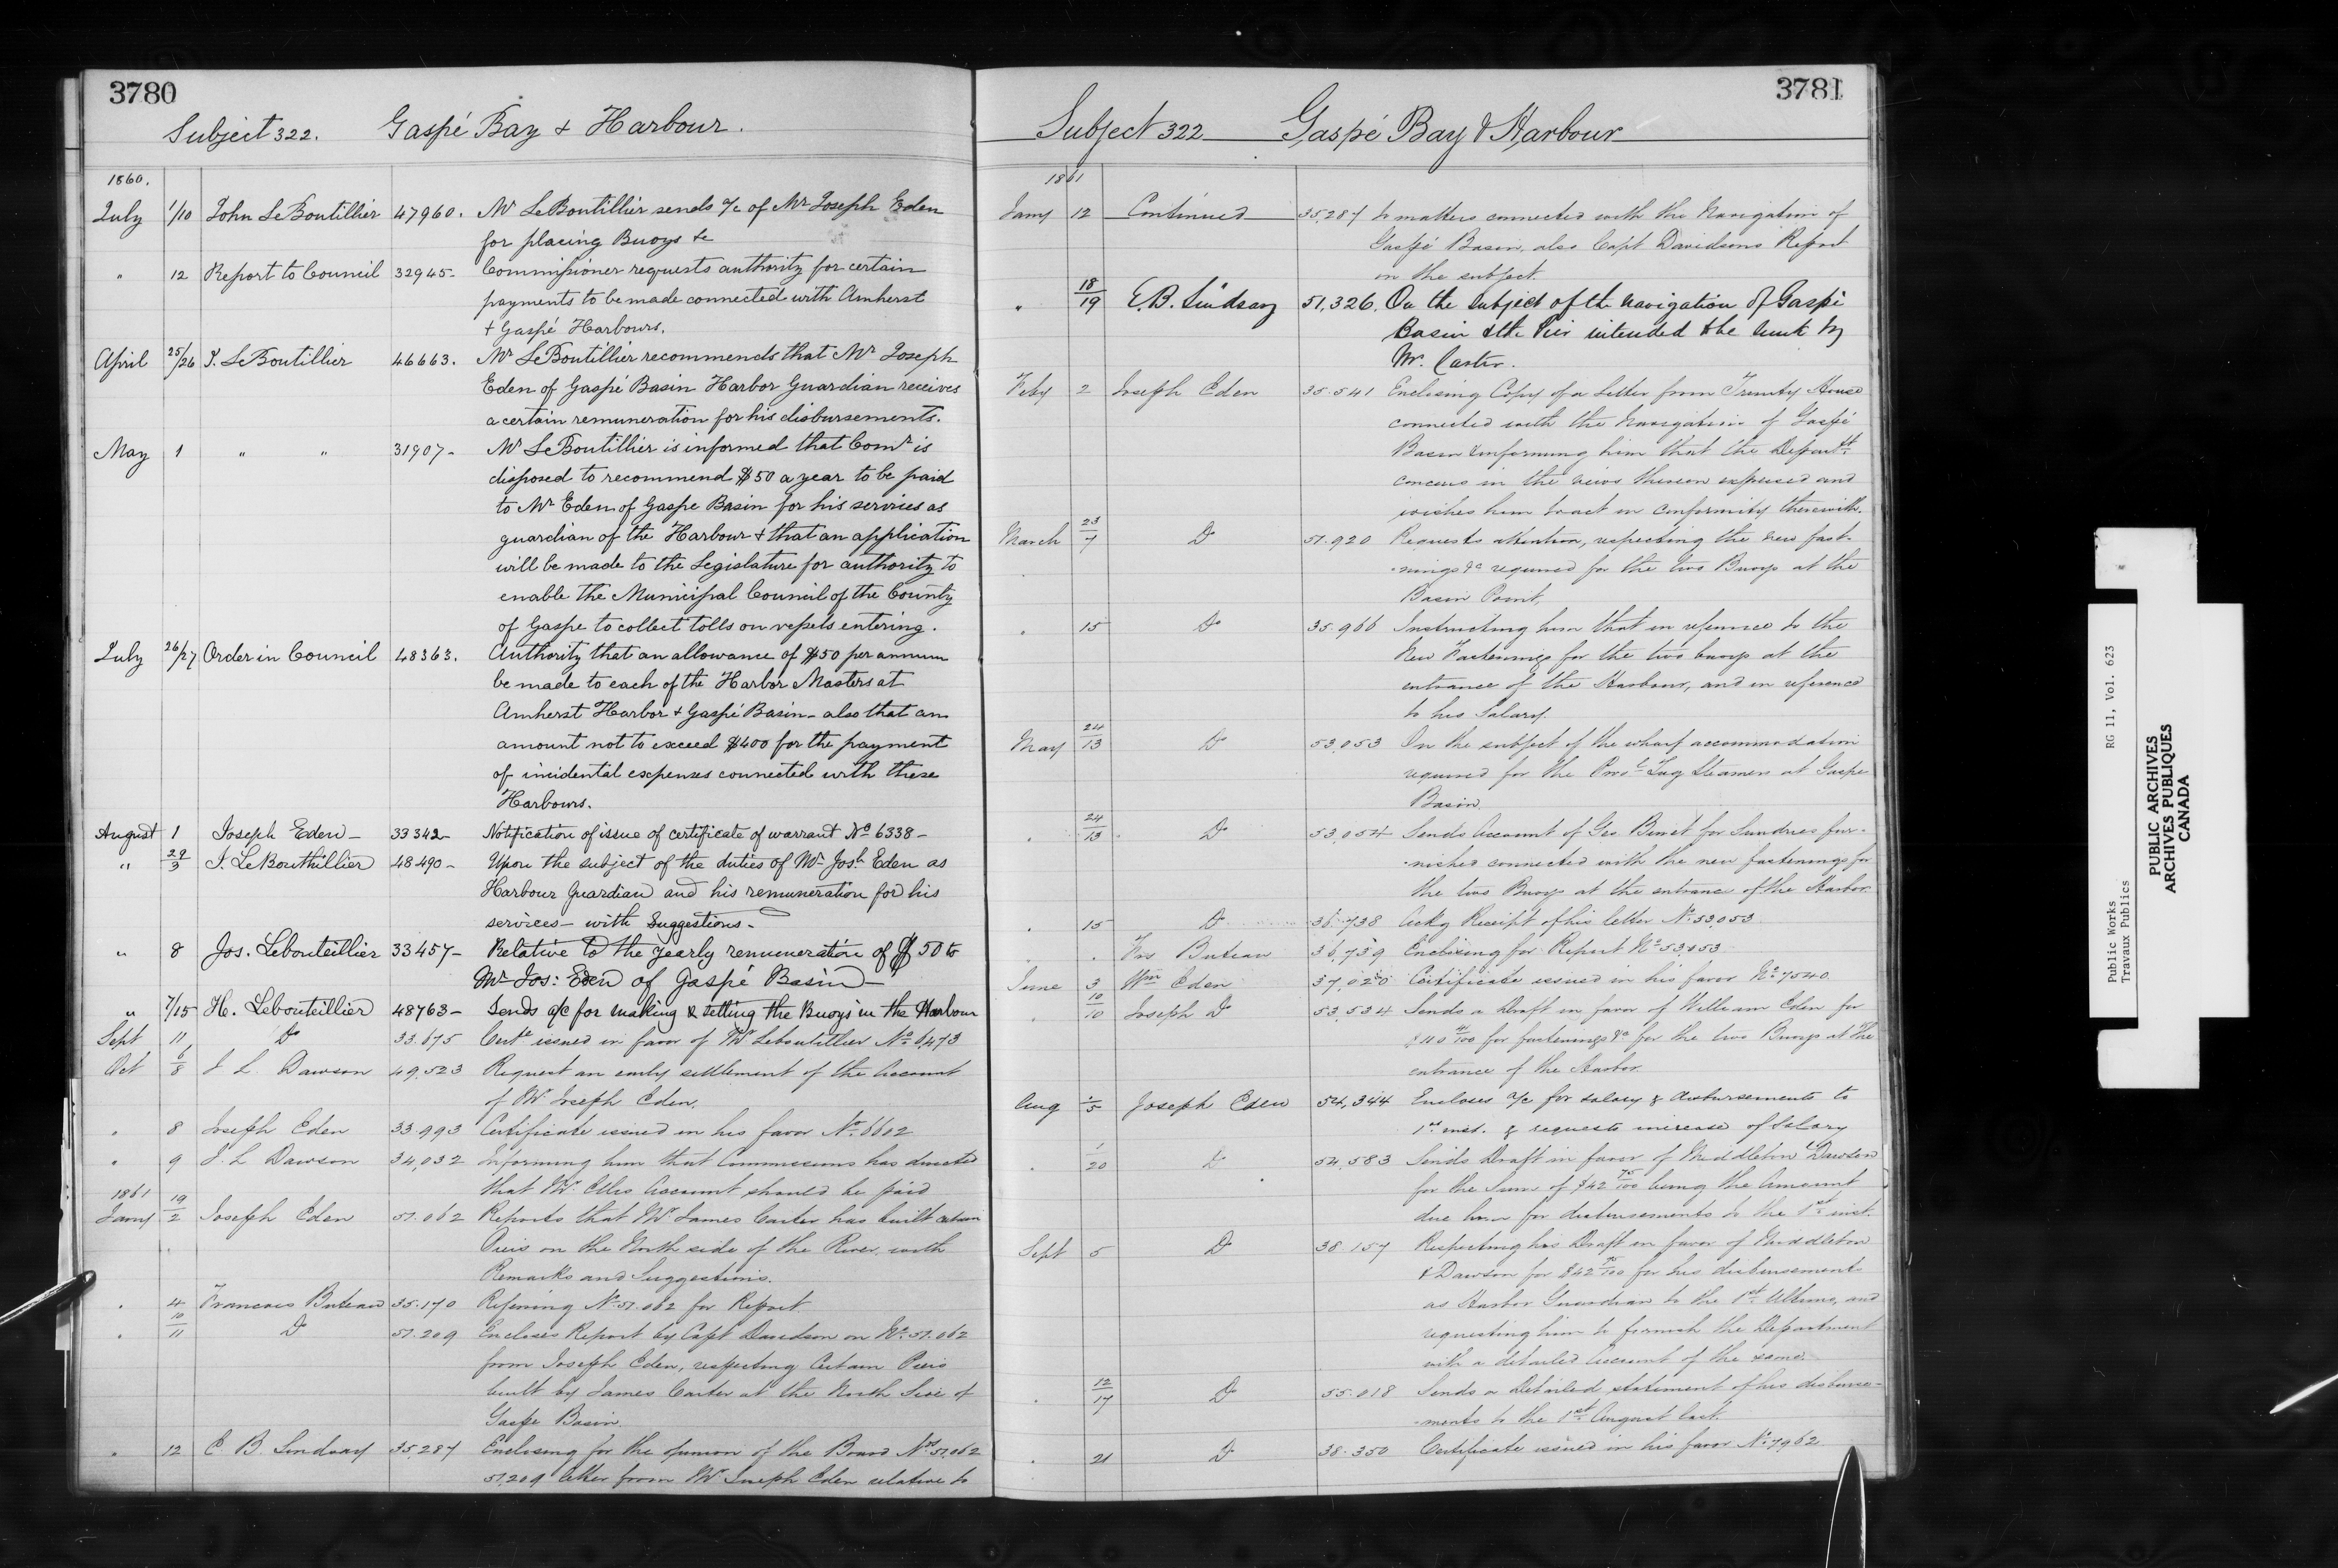 3780
Subject 322. Gaspé Bay & Harbour.
1860.
July 1/10 John LeBoutillier 47960. Mr LeBoutillier sends a/c of Mr Joseph Eden
for placing Buoys &c
" 12 Report to Council 32945- Commissioner requests authority for certain
payments to be made connected with Amherst
& Gaspé Harbours.
April 25/26 J. LeBoutillier 46663. Mr LeBoutillier recommends that Mr Joseph
Eden of Gaspé Basin Harbor Guardian receives
a certain remuneration for his disbursements.
May 1 " " 31907- Mr LeBoutillier is informed that Comr is
disposed to recommend $50 a year to be paid
to Mr Eden of Gaspe Basin for his services as
guardian of the Harbour & that an application
will be made to the Legislature for authority to
enable the Municipal Council of the County
of Gaspe to collect tolls on vessels entering.
July 26/27 Order in Council 48363. Authority that an allowance of $50 per annum
be made to each of the Harbor Masters at
Amherst Harbor & Gaspé Basin- also that an
amount not to exceed $400 for the payment
of incidental expenses connected with these
Harbours.
August 1 Joseph Eden- 33342- Notification of issue of certificate of warrant No 6338-
" 29/3 J. LeBouthillier 48490- Upon the subject of the duties of Mr Josh Eden as
Harbour Guardian and his remuneration for his
services- with Suggestions-
" 8 Jos. Lebouteillier 33457- Relative to the yearly remuneration of $50 to
Mr Jos: Eden of Gaspé Basin-
" 7/15 H. Lebouteillier 48763- Sends a/c for making & setting the Buoys in the Harbour
Sept 11 Do 33.675 Certe issued in favor of Mr Leboutillier No 6,473
Oct 6/8 J L Dawson 49,523 Request an early settlement of the Account
of Mr Joseph Eden.
" 8 Joseph Eden 33.993 Certificate issued in his favor No 6602
" 9 J. L Dawson 34,032 Informing him that Commissioner has directed
that Mr Account should be paid
1861
Jany 19/2 Joseph Eden 51.062 Reports that Mr James Carter has built certain
Piers on the North side of the River, with
Remarks and Suggestions.
" 4 Francois Buteau 35.170 Refering No 51.062 for Report
" 10/11 Do 51.209 Encloses Report by Capt Davidson on No 51.062
from Joseph Eden, respecting Certain Piers
built by James Carter at the North Side of
Gaspe Basin.
" 12 E. B. Lindsay 35,287 Enclosing for the opinion of the Board Nos 51.062
51,209 letter from Mr Joseph Eden relative to
3781
Subject 322 Gaspé Bay & Harbour
1861
Jany 12 Continued 35,287 to matters connected with the Navigation of
Gaspé Basin, also Capt Davidsons Report
on the subject.
" 18/19 E. B. Lindsay 51,326. On the subject of the navigation of Gaspé
Basin & the Pier intended to be sunk by
Mr. Carter.
Feby 2 Joseph Eden 35.541 Enclosing Copy of a Letter from Trinity House
connected with the Navigation of Gaspé
Basin & informing him that the Departt
concurs in the views thereon expressed and
wishes him to act in conformity therewith.
March 23/7 Do 51.920 Requests attention, respecting the new fast-
-nings &c required for the two Buoys at the
Basin Point.
" 15 Do 35.966 Instructing him that in reference to the
New Fastenings for the two buoys at the
entrance of the Harbour, and in reference
to his Salary.
May 24/13 Do 53,053 On the subject of the wharf accommodation
required for the Provl Tug Steamers at Gaspe
Basin.
" 24/13 Do 53,054 Sends Account of Geo Binet for Sundries fur-
-nished connected with the new fastenings for
the two Buoys at the entrance of the Harbor.
" 15 Do 36.738 Ackg Receipt of his letter No 53,053
" " Frs Buteau 36,739 Enclosing for Report No 53,053
June 3 Wm Eden 37,020 Certificate issued in his favor No 7540
" 10/10 Joseph Do 53,534 Sends a Draft in favor of William Eden for
for fastenings &c for the two Buoys at the
entrance of the Harbor.
Aug 1/5 Joseph Eden 54,344 Encloses a/c for salary & disbursements to
1st inst. & requests increase of Salary
" 1/20 Do 54,583 Sends Draft in favor of Middleton & Dawson
for the Sum of $42 75/100 being the Amount
due him for disbursements to the 1st inst.
Sept 5 Do 38.157 Respecting his Draft in favor of Middleton
& Dawson for $42 75/100 for his disbursements
as Harbor Guardian to the 1st Ultimo, and
requesting him to furnish the Department
with a detailed Account of the same.
" 12/17 Do 55.018 Sends a Detailed statement of his disburse-
-ments to the 1st August last.
" 21 Do 38.350 Certificate issued in his favor No 7962
Public Works RG 11, Vol. 623
Travaux Publics
PUBLIC ARCHIVES
ARCHIVES PUBLIQUES
CANADA